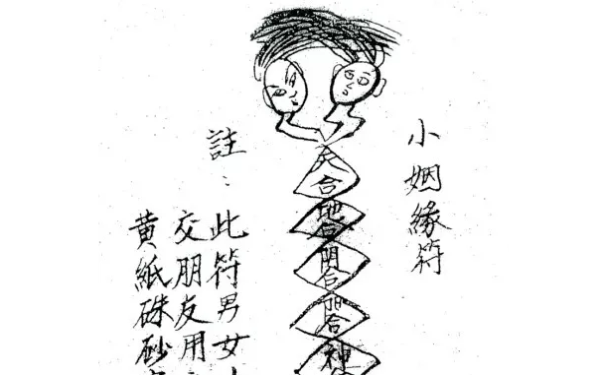 小姻緣符
天合
地合
陰合
陽合
神
註：此符男女
交朋友用
黃紙硃砂